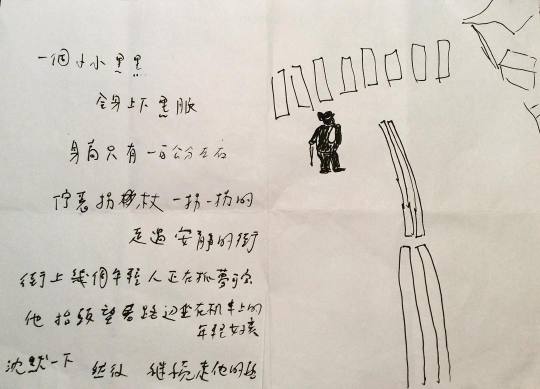 一個小小黑黑
全身上下黑服
身高只有一百公分左右
拐杖 一拐一拐的
走過安靜的街
街上幾個年輕人正在抓夢可
他抬頭望著路边坐在机车上的
年轻女孩
沈默一下 然後 继續走他的路